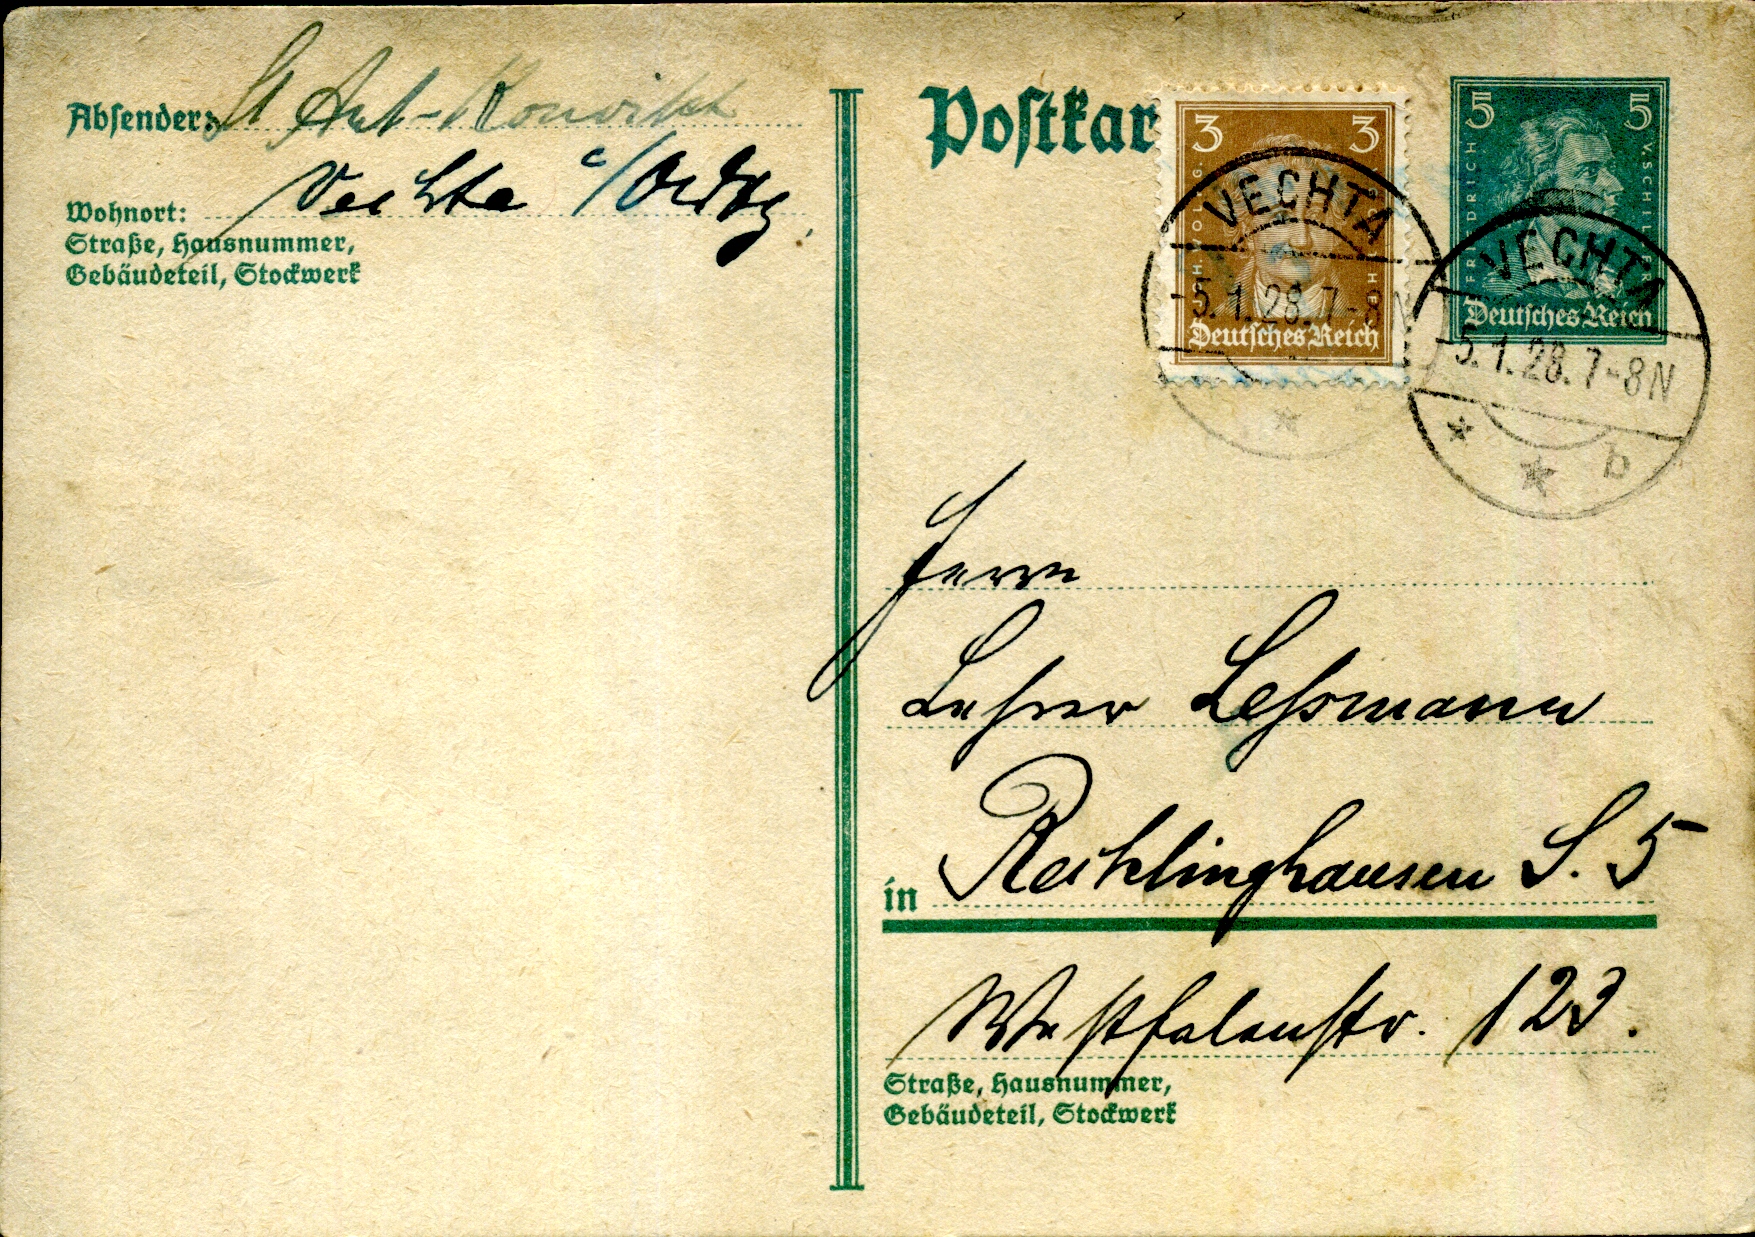 Absender: St Ant-Konvikt
Vechta i/Oldbg.
Wohnort:
Straße, Hausnummer,
Gebäudeteil, Stockwerk
Postkar
3 3
JOH. WOLFG.
Deutsches Reich
5 5
FRIEDRICH V. SCHILLER
Deutsches Reich
VECHTA
-5.1.28.7-8N
VECHTA
-5.1.28.7-8N
* * b
Herrn
Lehrer Leßmann
in Recklinghausen S. 5
Westfalenstr. 123.
Straße, Hausnummer,
Gebäudeteil, Stockwerk